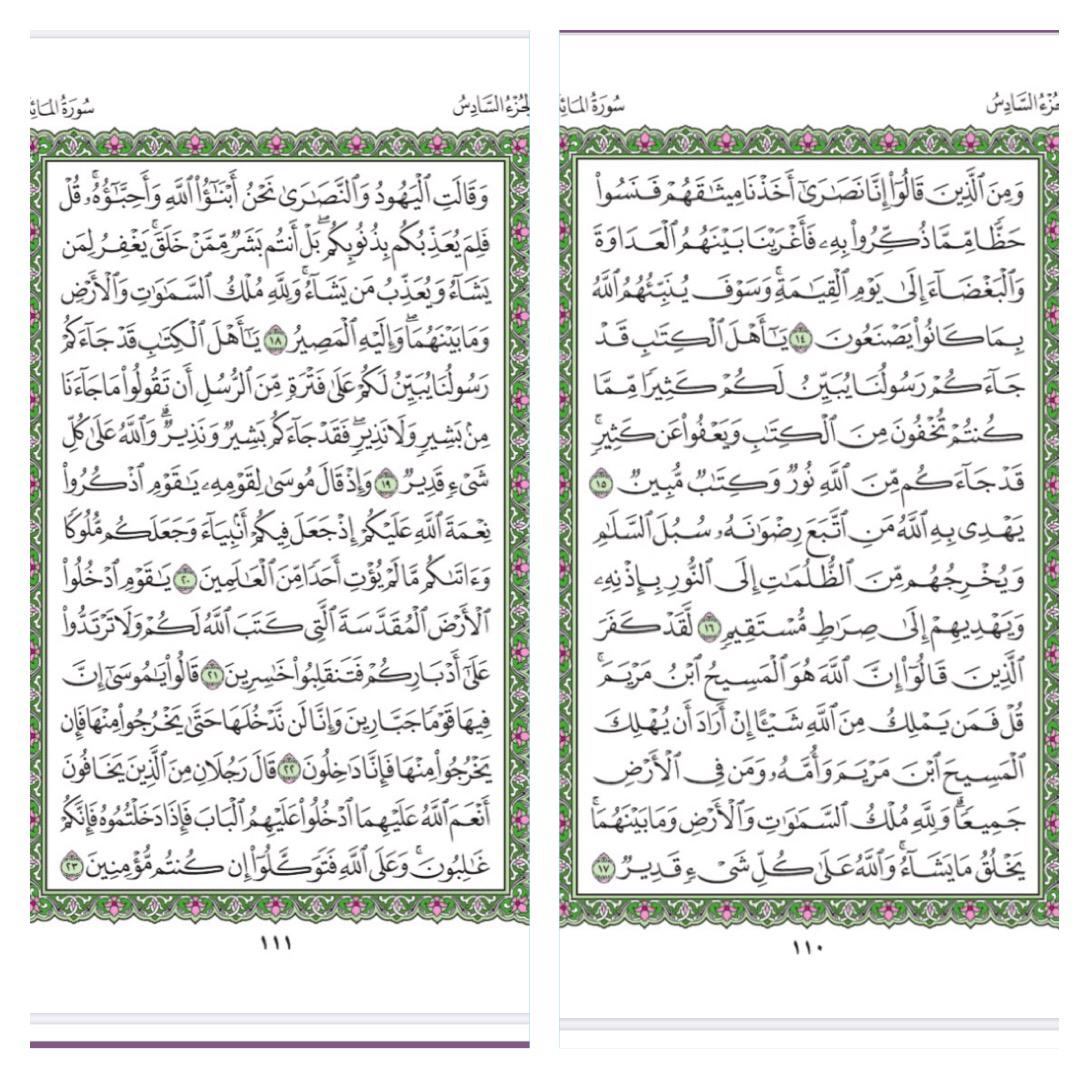 جُزْءُ السَّادِسُ سُورَةُ المَائِ
وَمِنَ ٱلَّذِينَ قَالُوٓا۟ إِنَّا نَصَٰرَىٰٓ أَخَذْنَا مِيثَٰقَهُمْ فَنَسُوا۟
حَظًّا مِّمَّا ذُكِّرُوا۟ بِهِۦ فَأَغْرَيْنَا بَيْنَهُمُ ٱلْعَدَاوَةَ
وَٱلْبَغْضَآءَ إِلَىٰ يَوْمِ ٱلْقِيَٰمَةِ ۚ وَسَوْفَ يُنَبِّئُهُمُ ٱللَّهُ
بِمَا كَانُوا۟ يَصْنَعُونَ ١٤ يَٰٓأَهْلَ ٱلْكِتَٰبِ قَدْ
جَآءَكُمْ رَسُولُنَا يُبَيِّنُ لَكُمْ كَثِيرًا مِّمَّا
كُنتُمْ تُخْفُونَ مِنَ ٱلْكِتَٰبِ وَيَعْفُوا۟ عَن كَثِيرٍ ۚ
قَدْ جَآءَكُم مِّنَ ٱللَّهِ نُورٌ وَكِتَٰبٌ مُّبِينٌ ١٥
يَهْدِى بِهِ ٱللَّهُ مَنِ ٱتَّبَعَ رِضْوَٰنَهُۥ سُبُلَ ٱلسَّلَٰمِ
وَيُخْرِجُهُم مِّنَ ٱلظُّلُمَٰتِ إِلَى ٱلنُّورِ بِإِذْنِهِۦ
وَيَهْدِيهِمْ إِلَىٰ صِرَٰطٍ مُّسْتَقِيمٍ ١٦ لَّقَدْ كَفَرَ
ٱلَّذِينَ قَالُوٓا۟ إِنَّ ٱللَّهَ هُوَ ٱلْمَسِيحُ ٱبْنُ مَرْيَمَ ۚ
قُلْ فَمَن يَمْلِكُ مِنَ ٱللَّهِ شَيْـًٔا إِنْ أَرَادَ أَن يُهْلِكَ
ٱلْمَسِيحَ ٱبْنَ مَرْيَمَ وَأُمَّهُۥ وَمَن فِى ٱلْأَرْضِ
جَمِيعًا ۗ وَلِلَّهِ مُلْكُ ٱلسَّمَٰوَٰتِ وَٱلْأَرْضِ وَمَا بَيْنَهُمَا ۚ
يَخْلُقُ مَا يَشَآءُ ۚ وَٱللَّهُ عَلَىٰ كُلِّ شَىْءٍ قَدِيرٌ ١٧
١١٠
لجُزْءُ السَّادِسُ سُورَةُ المَائِ
وَقَالَتِ ٱلْيَهُودُ وَٱلنَّصَٰرَىٰ نَحْنُ أَبْنَٰٓؤُا۟ ٱللَّهِ وَأَحِبَّٰٓؤُهُۥ ۚ قُلْ
فَلِمَ يُعَذِّبُكُم بِذُنُوبِكُم ۖ بَلْ أَنتُم بَشَرٌ مِّمَّنْ خَلَقَ ۚ يَغْفِرُ لِمَن
يَشَآءُ وَيُعَذِّبُ مَن يَشَآءُ ۚ وَلِلَّهِ مُلْكُ ٱلسَّمَٰوَٰتِ وَٱلْأَرْضِ
وَمَا بَيْنَهُمَا ۖ وَإِلَيْهِ ٱلْمَصِيرُ ١٨ يَٰٓأَهْلَ ٱلْكِتَٰبِ قَدْ جَآءَكُمْ
رَسُولُنَا يُبَيِّنُ لَكُمْ عَلَىٰ فَتْرَةٍ مِّنَ ٱلرُّسُلِ أَن تَقُولُوا۟ مَا جَآءَنَا
مِنۢ بَشِيرٍ وَلَا نَذِيرٍ ۖ فَقَدْ جَآءَكُم بَشِيرٌ وَنَذِيرٌ ۗ وَٱللَّهُ عَلَىٰ كُلِّ
شَىْءٍ قَدِيرٌ ١٩ وَإِذْ قَالَ مُوسَىٰ لِقَوْمِهِۦ يَٰقَوْمِ ٱذْكُرُوا۟
نِعْمَةَ ٱللَّهِ عَلَيْكُمْ إِذْ جَعَلَ فِيكُمْ أَنۢبِيَآءَ وَجَعَلَكُم مُّلُوكًا
وَءَاتَىٰكُم مَّا لَمْ يُؤْتِ أَحَدًا مِّنَ ٱلْعَٰلَمِينَ ٢٠ يَٰقَوْمِ ٱدْخُلُوا۟
ٱلْأَرْضَ ٱلْمُقَدَّسَةَ ٱلَّتِى كَتَبَ ٱللَّهُ لَكُمْ وَلَا تَرْتَدُّوا۟
عَلَىٰٓ أَدْبَارِكُمْ فَتَنقَلِبُوا۟ خَٰسِرِينَ ٢١ قَالُوا۟ يَٰمُوسَىٰٓ إِنَّ
فِيهَا قَوْمًا جَبَّارِينَ وَإِنَّا لَن نَّدْخُلَهَا حَتَّىٰ يَخْرُجُوا۟ مِنْهَا فَإِن
يَخْرُجُوا۟ مِنْهَا فَإِنَّا دَٰخِلُونَ ٢٢ قَالَ رَجُلَانِ مِنَ ٱلَّذِينَ يَخَافُونَ
أَنْعَمَ ٱللَّهُ عَلَيْهِمَا ٱدْخُلُوا۟ عَلَيْهِمُ ٱلْبَابَ فَإِذَا دَخَلْتُمُوهُ فَإِنَّكُمْ
غَٰلِبُونَ ۚ وَعَلَى ٱللَّهِ فَتَوَكَّلُوٓا۟ إِن كُنتُم مُّؤْمِنِينَ ٢٣
١١١